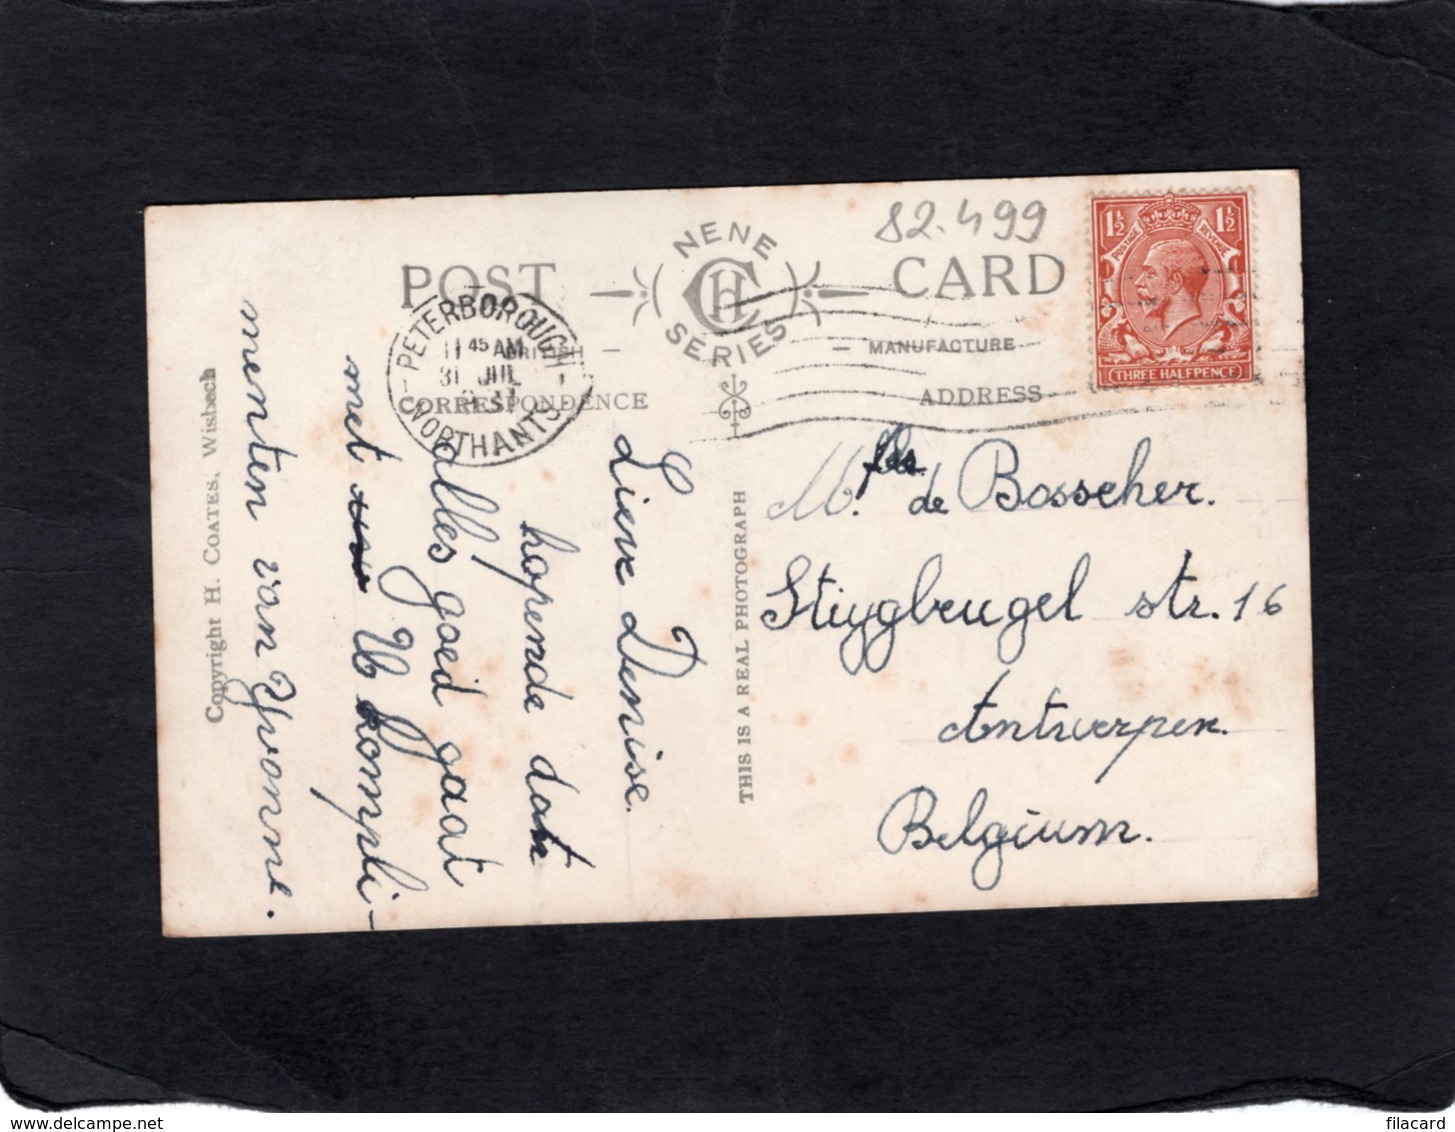 82.499
POST CARD
NENE
CH
SERIES
1½ 1½
POSTAGE REVENUE
THREE HALFPENCE
PETERBOROUGH
11 45 AM
31 JUL
NORTHANTS
BRITISH — — MANUFACTURE
CORRESPONDENCE
ADDRESS
Lieve Denise.
hopende dat
alles goed gaat
met U kompli-
menten van Yvonne.
THIS IS A REAL PHOTOGRAPH
Copyright H. COATES, Wisbech
de Bosscher.
Stijgbeugel str. 16
Antwerpen.
Belgium.
filacard